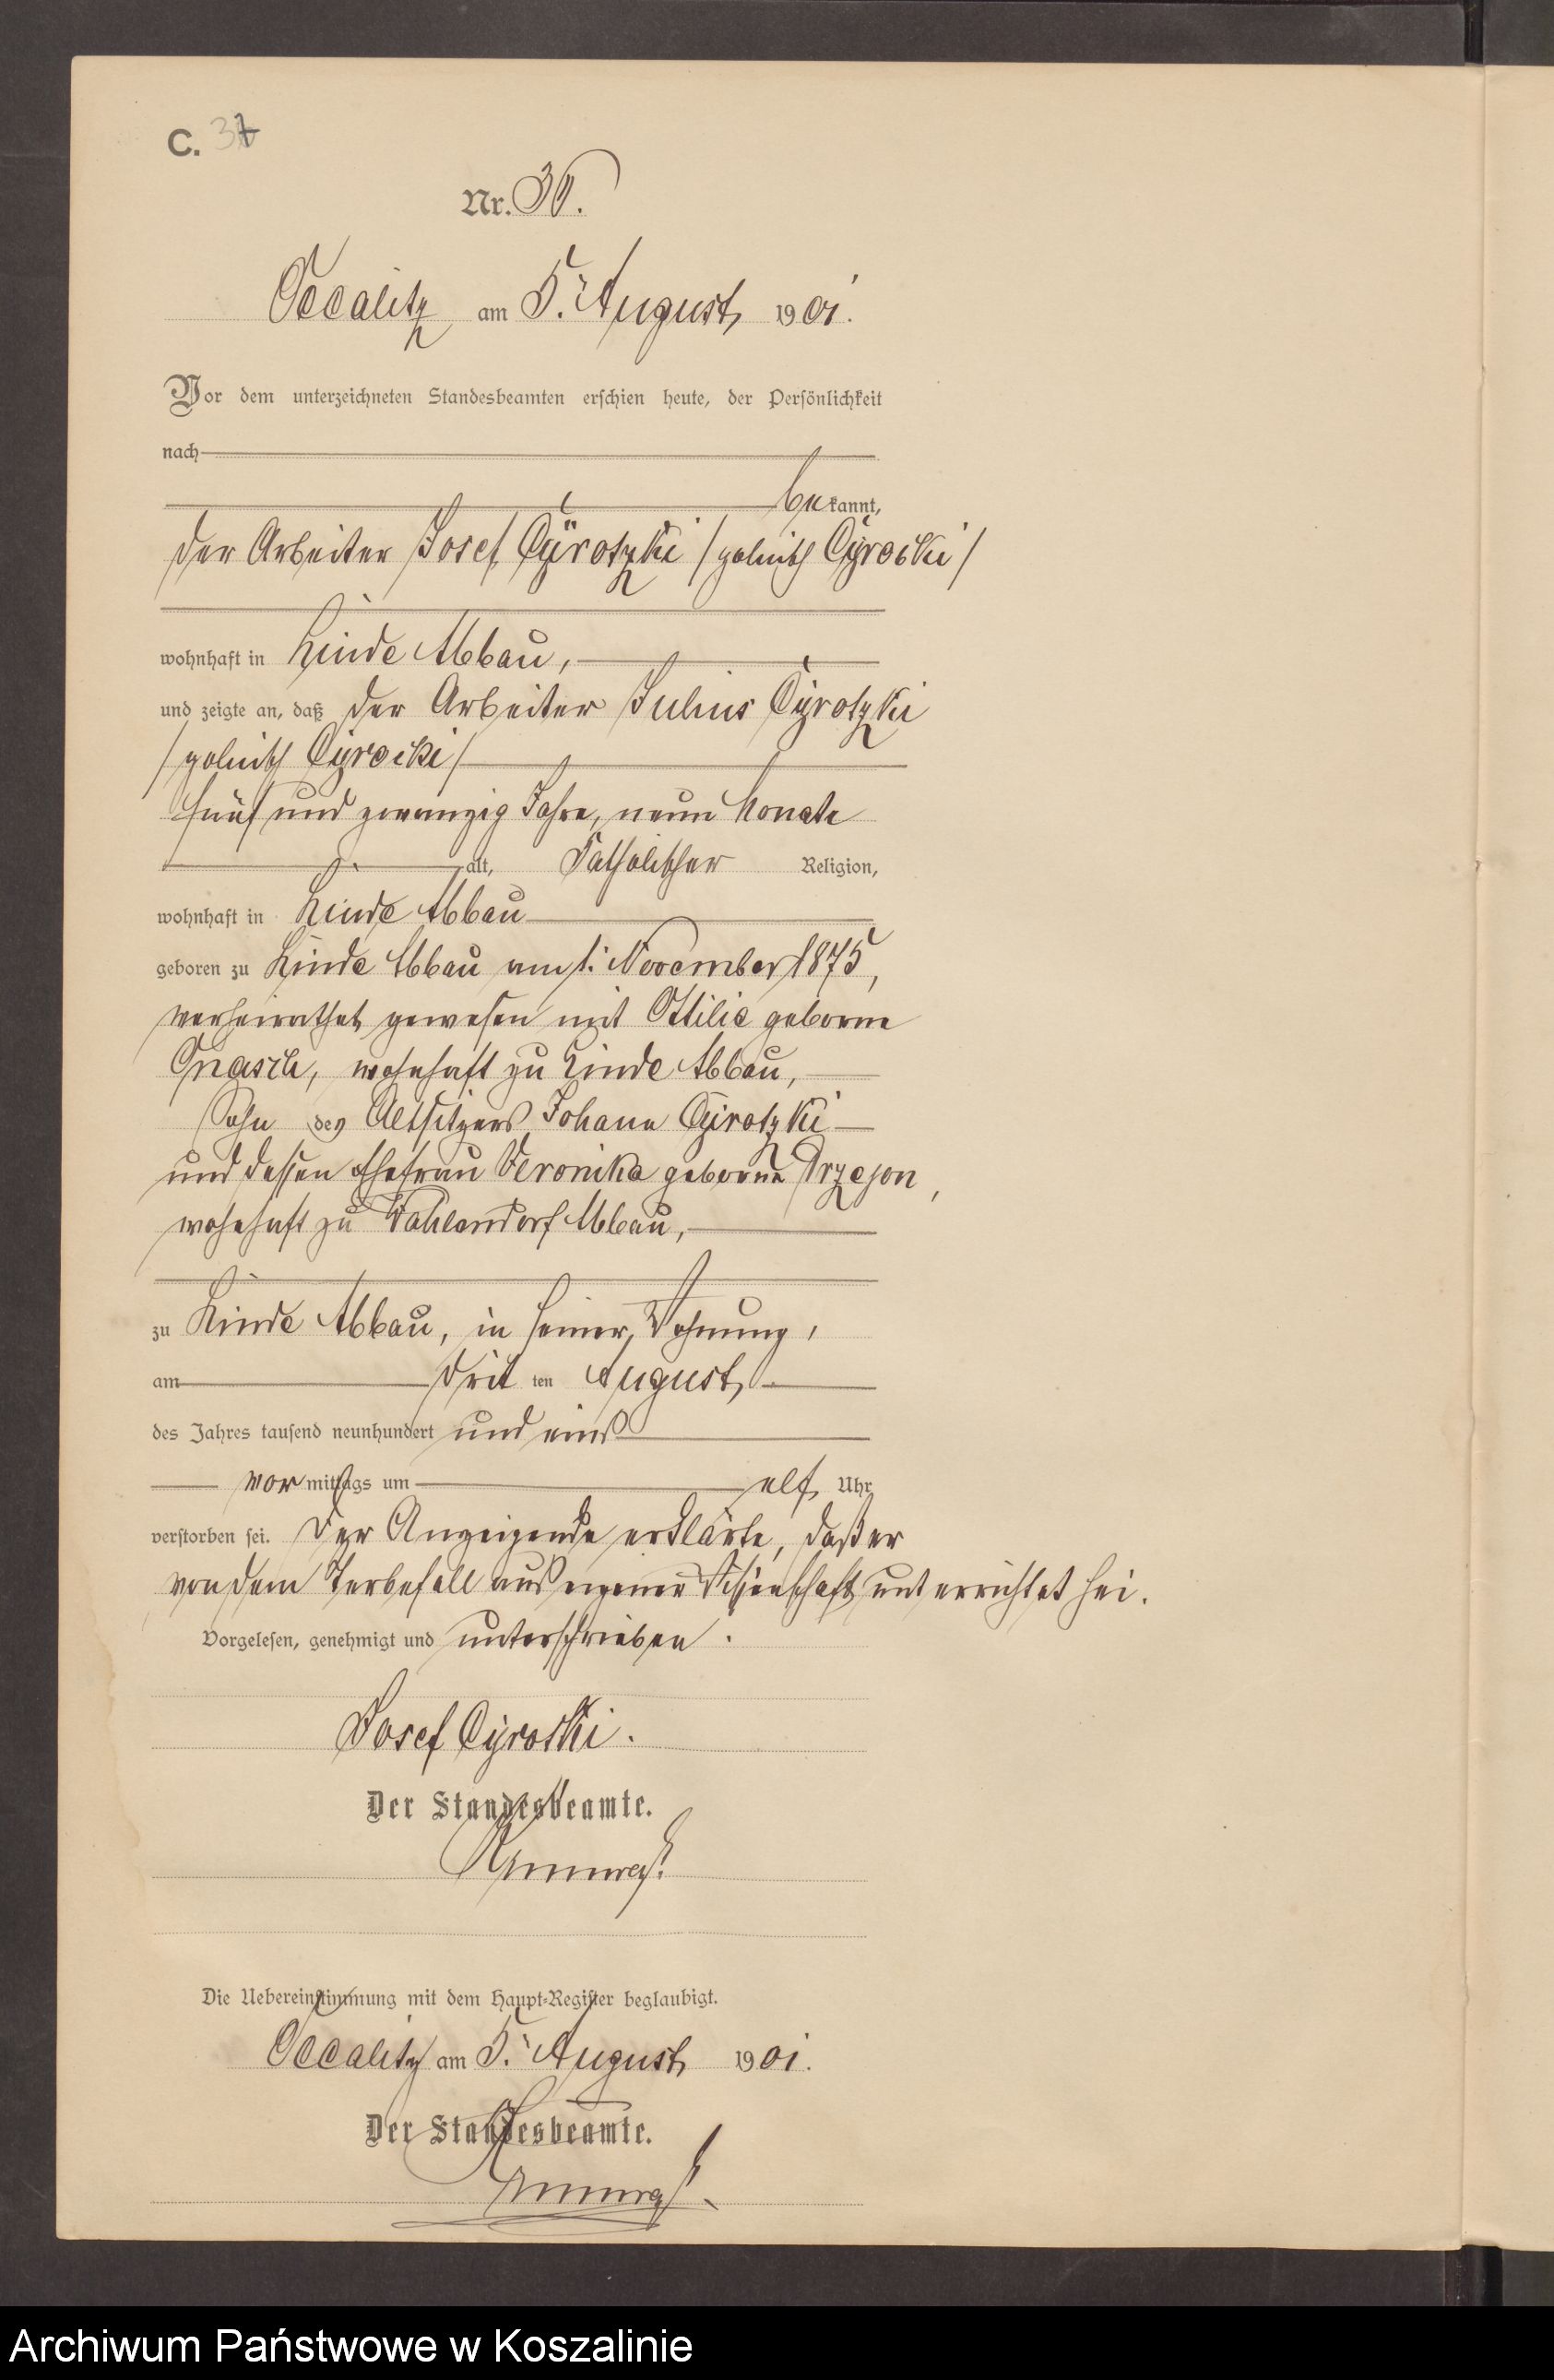 C. 37
Nr. 30.
Occalitz am 5. August 1901.
Vor dem unterzeichneten Standesbeamten erschien heute, der Persönlichkeit
nach
bekannt,
der Arbeiter Josef Cyrotzki /polnisch Cyrocki/
wohnhaft in Linde Abbau,
und zeigte an, daß der Arbeiter Julius Cyrotzki
/polnisch Cyrocki/
fünf und zwanzig Jahre, neun Monate
alt, katholischer Religion,
wohnhaft in Linde Abbau
geboren zu Linde Abbau am 1. November 1875,
verheirathet gewesen mit Ottilie geborne
Gnasch, wohnhaft zu Linde Abbau,
Sohn des Altsitzers Johann Cyrotzki
und dessen Ehefrau Veronika geborne Drzejon,
wohnhaft zu Wahlendorf Abbau,
zu Linde Abbau, in seiner Wohnung,
am dritten August
des Jahres tausend neunhundert und eins
vormittags um elf Uhr
verstorben sei. Der Anzeigende erklärte, daß er
von dem Sterbefall aus eigener Wissenschaft unterrichtet sei.
Vorgelesen, genehmigt und unterschrieben.
Josef Cyrotzki.
Der Standesbeamte.
Die Uebereinstimmung mit dem Haupt-Register beglaubigt.
Occalitz am 5. August 1901.
Der Standesbeamte.
Archiwum Państwowe w Koszalinie